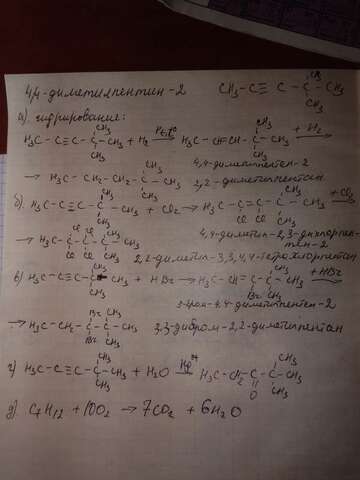 4,4-диметилпентин-2 CH₃-C≡C-C-CH₃ CH₃ CH₃
а). гидрирование:
H₃C-C≡C-C-CH₃ + H₂ Pt,t° H₃C-CH=CH-C-CH₃ +H₂
CH₃ CH₃ CH₃ CH₃
4,4-диметилпентен-2
→ H₃C-CH₂-CH₂-C-CH₃ CH₃ CH₃
2,2-диметилпентан
б). H₃C-C≡C-C-CH₃ + Cl₂ → H₃C-C=C-C-CH₃ +Cl₂
CH₃ CH₃ Cl Cl CH₃ CH₃
4,4-диметил-2,3-дихлорпен-
тен-2
→ H₃C-C-C-C-CH₃ Cl Cl CH₃ Cl Cl CH₃
2,2-диметил-3,3,4,4-тетрахлорпентан
в) H₃C-C≡C-C-CH₃ + HBr → H₃C-CH=C-C-CH₃ +HBr
CH₃ CH₃ Br CH₃ CH₃
3-бром-4,4-диметилпентен-2
→ H₃C-CH₂-C-C-CH₃ Br CH₃ Br CH₃
3,3-дибром-2,2-диметилпентан
г) H₃C-C≡C-C-CH₃ + H₂O Hg²⁺ H₃C-CH₂-C-C-CH₃
CH₃ CH₃ O CH₃ CH₃
д) C₇H₁₂ + 10O₂ → 7CO₂ + 6H₂O